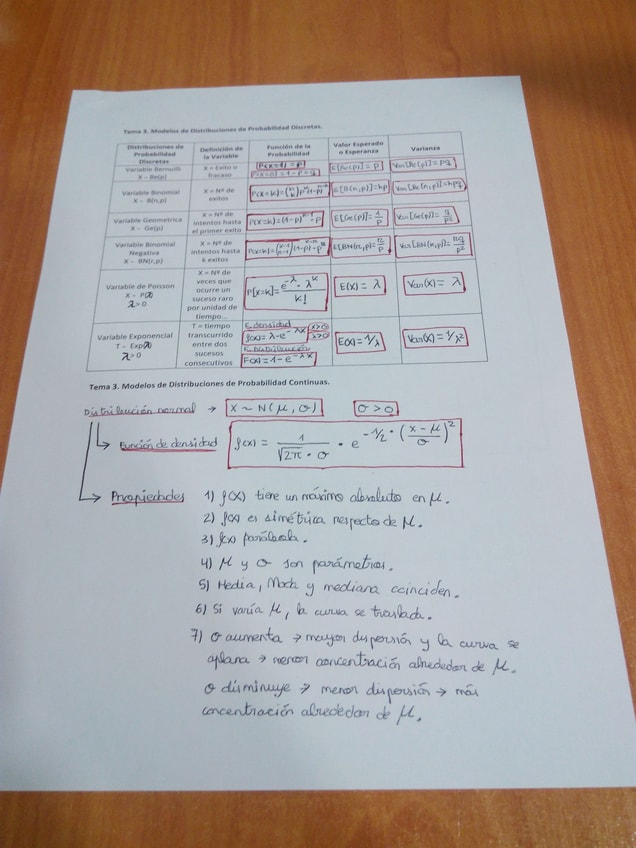 Tema 3. Modelos de Distribuciones de Probabilidad Discretas.
Distribuciones de Probabilidad Discretas
Definición de la Variable
Función de la Probabilidad
Valor Esperado o Esperanza
Varianza
Variable Bernuilli
X ~ Be(p)
X = Éxito o fracaso
P(X=1) = p
P(X=0) = 1-p = q
E[Be(p)] = p
Var[Be(p)] = pq
Variable Binomial
X ~ B(n,p)
X = Nº de exitos
P(X=k) = (n k) p^k (1-p)^n-k
E[B(n,p)] = np
Var[B(n,p)] = npq
Variable Geometrica
X ~ Ge(p)
X = Nº de intentos hasta el primer exito
P(X=k) = (1-p)^k-1 · p
E[Ge(p)] = 1/p
Var[Ge(p)] = q/p²
Variable Binomial Negativa
X ~ BN(r,p)
X = Nº de intentos hasta k exitos
Variable de Poisson
X ~ P(λ)
λ>0
X = Nº de veces que ocurre un suceso raro por unidad de tiempo...
P[X=k] = e^-λ · λ^k / k!
E(X) = λ
Var(X) = λ
Variable Exponencial
T ~ Exp(λ)
λ>0
T = tiempo transcurrido entre dos sucesos consecutivos
F. densidad
f(x) = λ·e^-λx
x>0
λ>0
F. distribución
F(x) = 1-e^-λx
E(X) = 1/λ
Var(X) = 1/λ²
Tema 3. Modelos de Distribuciones de Probabilidad Continuas.
Distribución normal → X ~ N(μ, σ) σ > 0
Función de densidad f(x) = 1/√2π · σ · e^-1/2 · (x - μ/σ)²
Propiedades 1) f(x) tiene un máximo absoluto en μ.
2) f(x) es simétrica respecto de μ.
3) f(x) parábola.
4) μ y σ son parámetros.
5) Media, Moda y mediana coinciden.
6) Si varía μ, la curva se traslada.
7) σ aumenta → mayor dispersión y la curva se
aplana → menor concentración alrededor de μ.
σ disminuye → menor dispersión → más
concentración alrededor de μ.